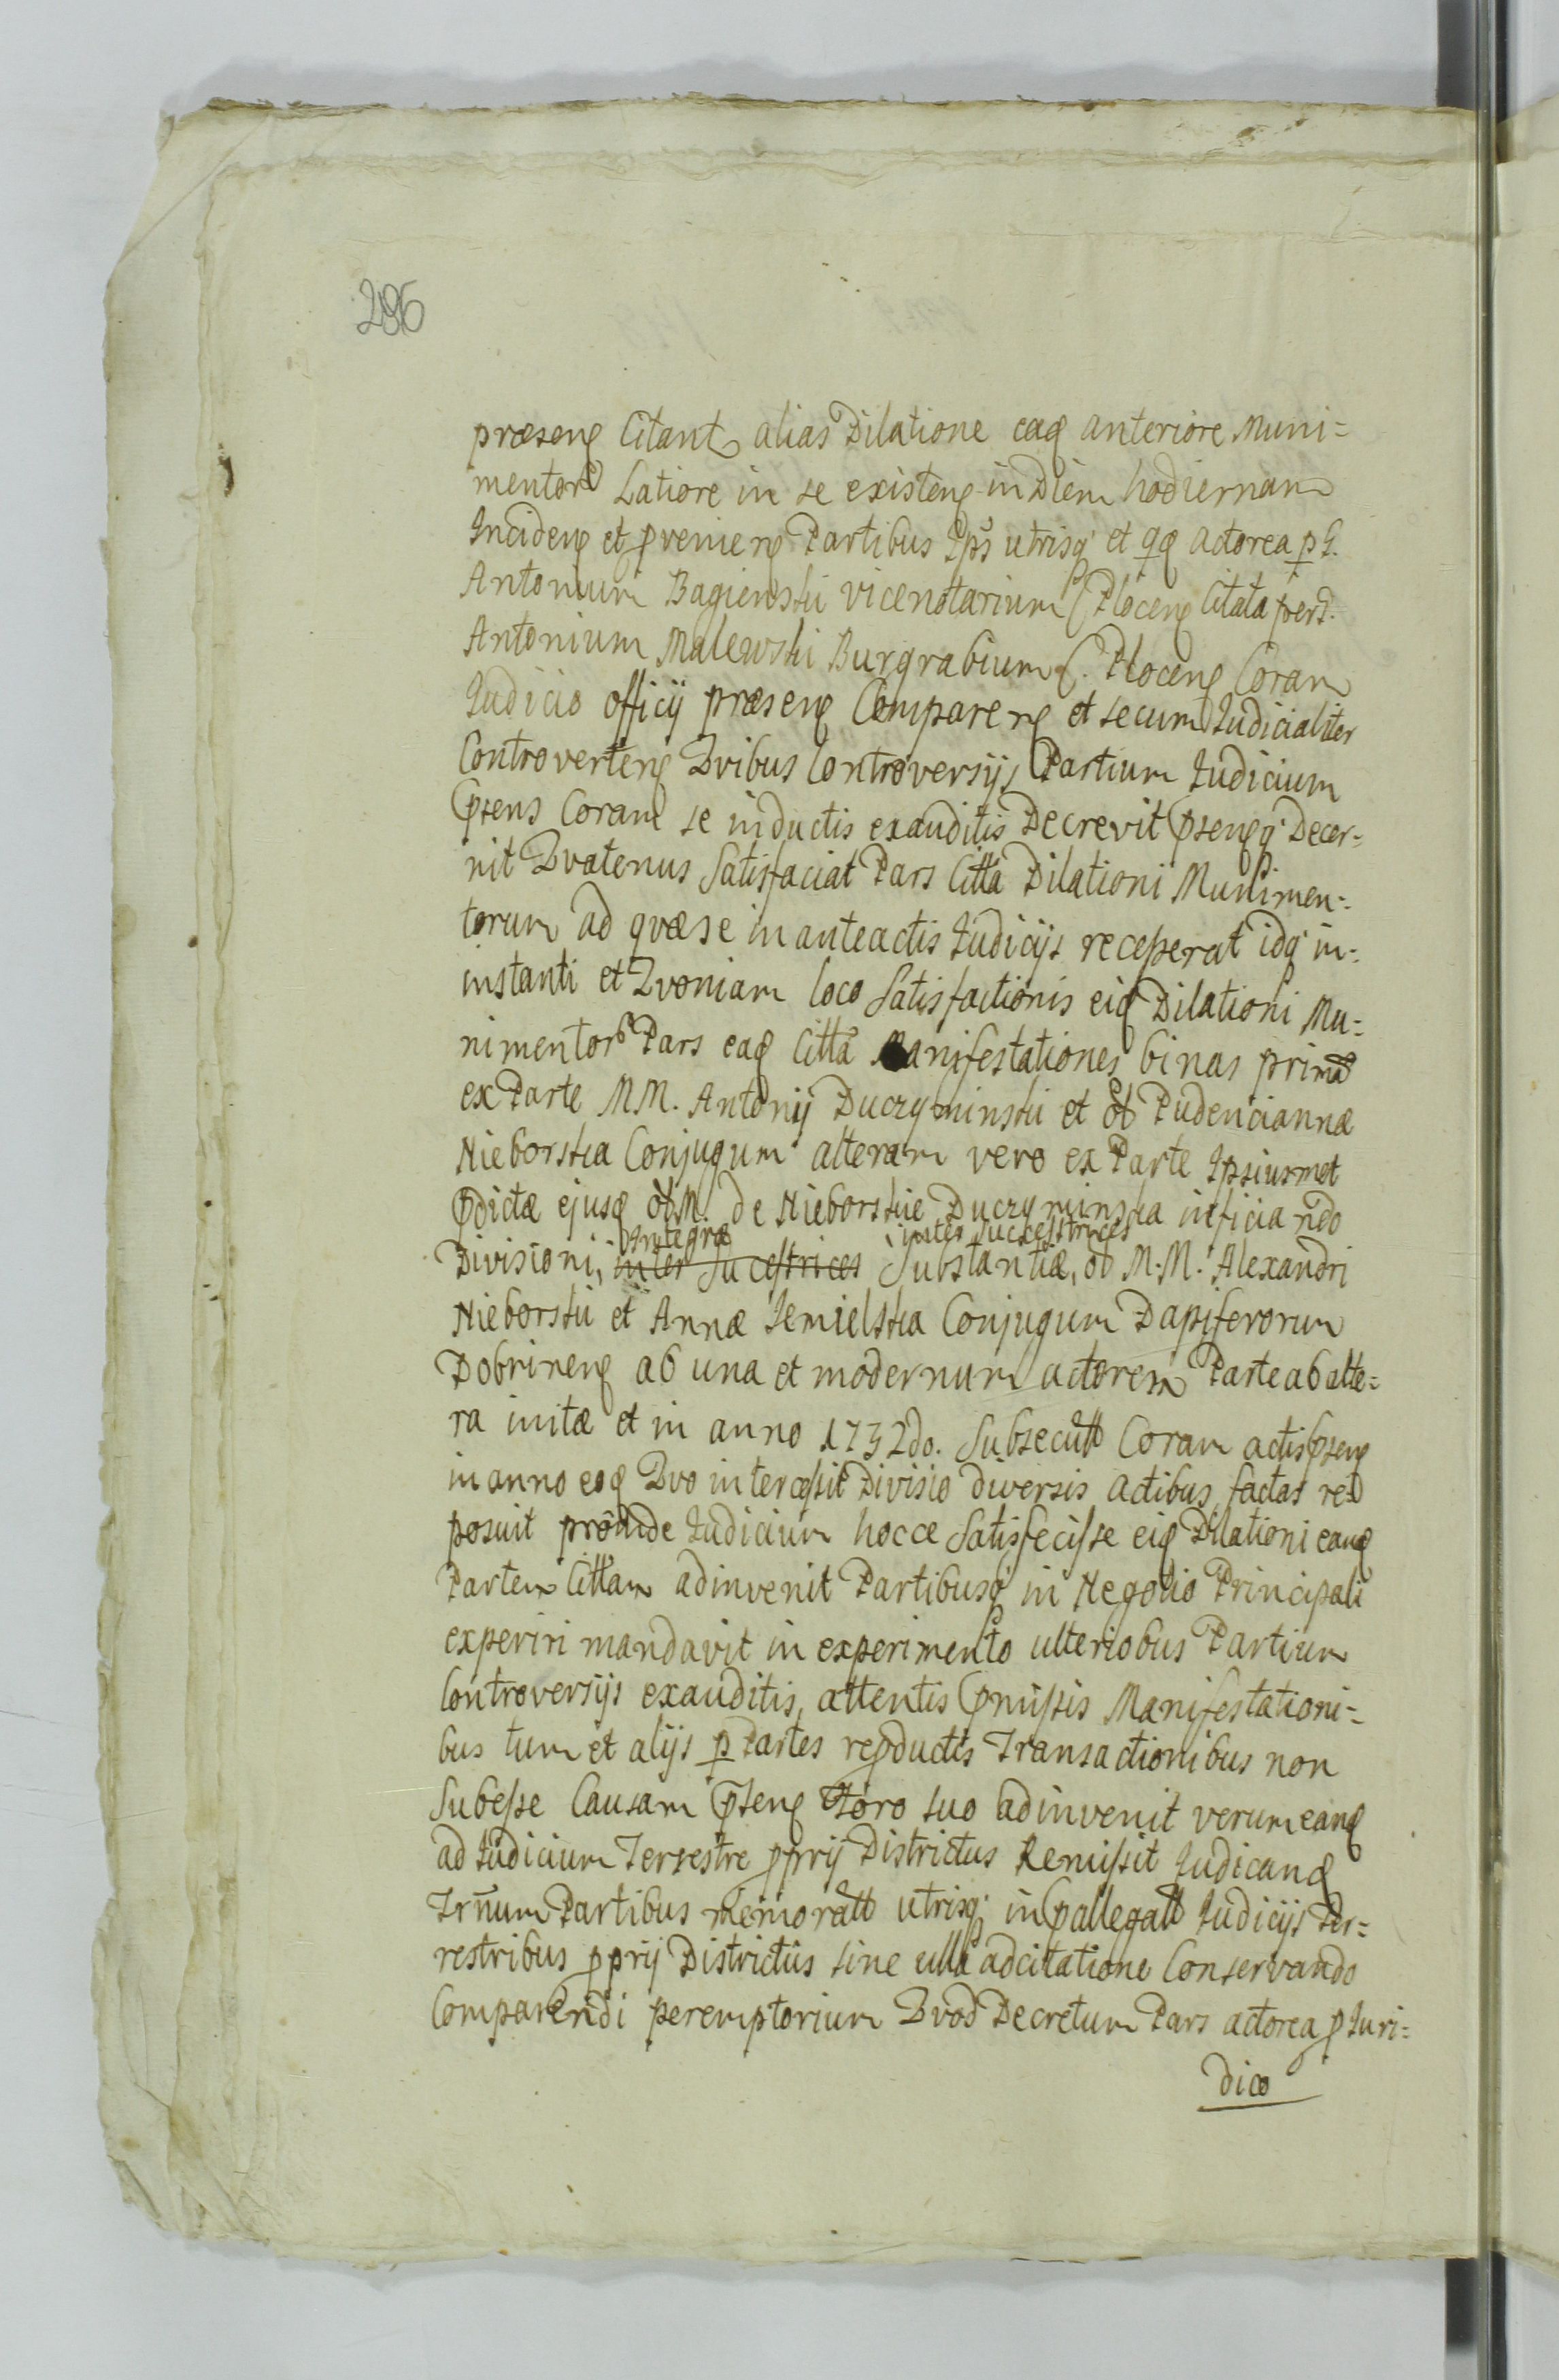 286
præseng Citant alias Dilatione eaq anteriore Muni=
mentor Latiore in se existeng in Diem hodiernam
Incideng et pvenieng Partibus Ips utrisq et qq actorea p G.
Antonium Bagienski vicenotarium C Ploceng Citata per G.
Antonium Malewski Burgrabium C. Ploceng Coram
Iudicio officij præseng Compareng et secum Iudicialiter
Controverteng Qvibus Controversijs Partium Iudicium
Psens Coram se inductis exauditis Decrevit psengq Decer=
nit Qvatenus Satisfaciat Pars Citta Dilationi Munimen=
torum ad qvæ se in anteactis Iudicijs receperat idq in=
instanti et Qvoniam loco Satisfactionis eiq Dilationi Mu=
nimentor Pars eaq Citta Manifestationes binas prima
ex Parte MM. Antonij Duczyminski et ol Pudenciannæ
Nieborska Conjugum alteram vero ex Parte Ipsiusmet
Pdictæ ejusq ol M. de Nieborskie Duczyminska inficiando
Integræ inter Successtrices
Divisioni, inter Sucestrices Substantiæ, ol M.M. Alexandri
Nieborski et Annæ Jemielska Conjugum Dapiferorum
Dobrineng ab una et modernum actorem Parte ab alte=
ra initæ et in anno 1732do. Subsecutt Coram actis pseng
in anno eoq Qvo intercessit Divisio diversis actibus factas re=
posuit proinde Iudicium hocce Satisfecisse eiq Dilationi eanq
Partem Cittam adinvenit Partibusq in Negotio Principali
experiri mandavit in experimento ulteriobus Partium
Controversijs exauditis, attentis Pmissis Manifestationi=
bus tum et alijs p Partes reproductis Transactionibus non
Subesse Causam Pseng Foro suo adinvenit verum eanq
ad Iudicium Terrestre pprij Districtus Remissit Iudicanq
Trnum Partibus memoratt utrisq in Pallegatt Iudicijs Ter=
restribus pprij Districtus sine ulla adcitatione Conservando
Comparendi peremptorium Qvod Decretum Pars actorea p Iuri=
dico